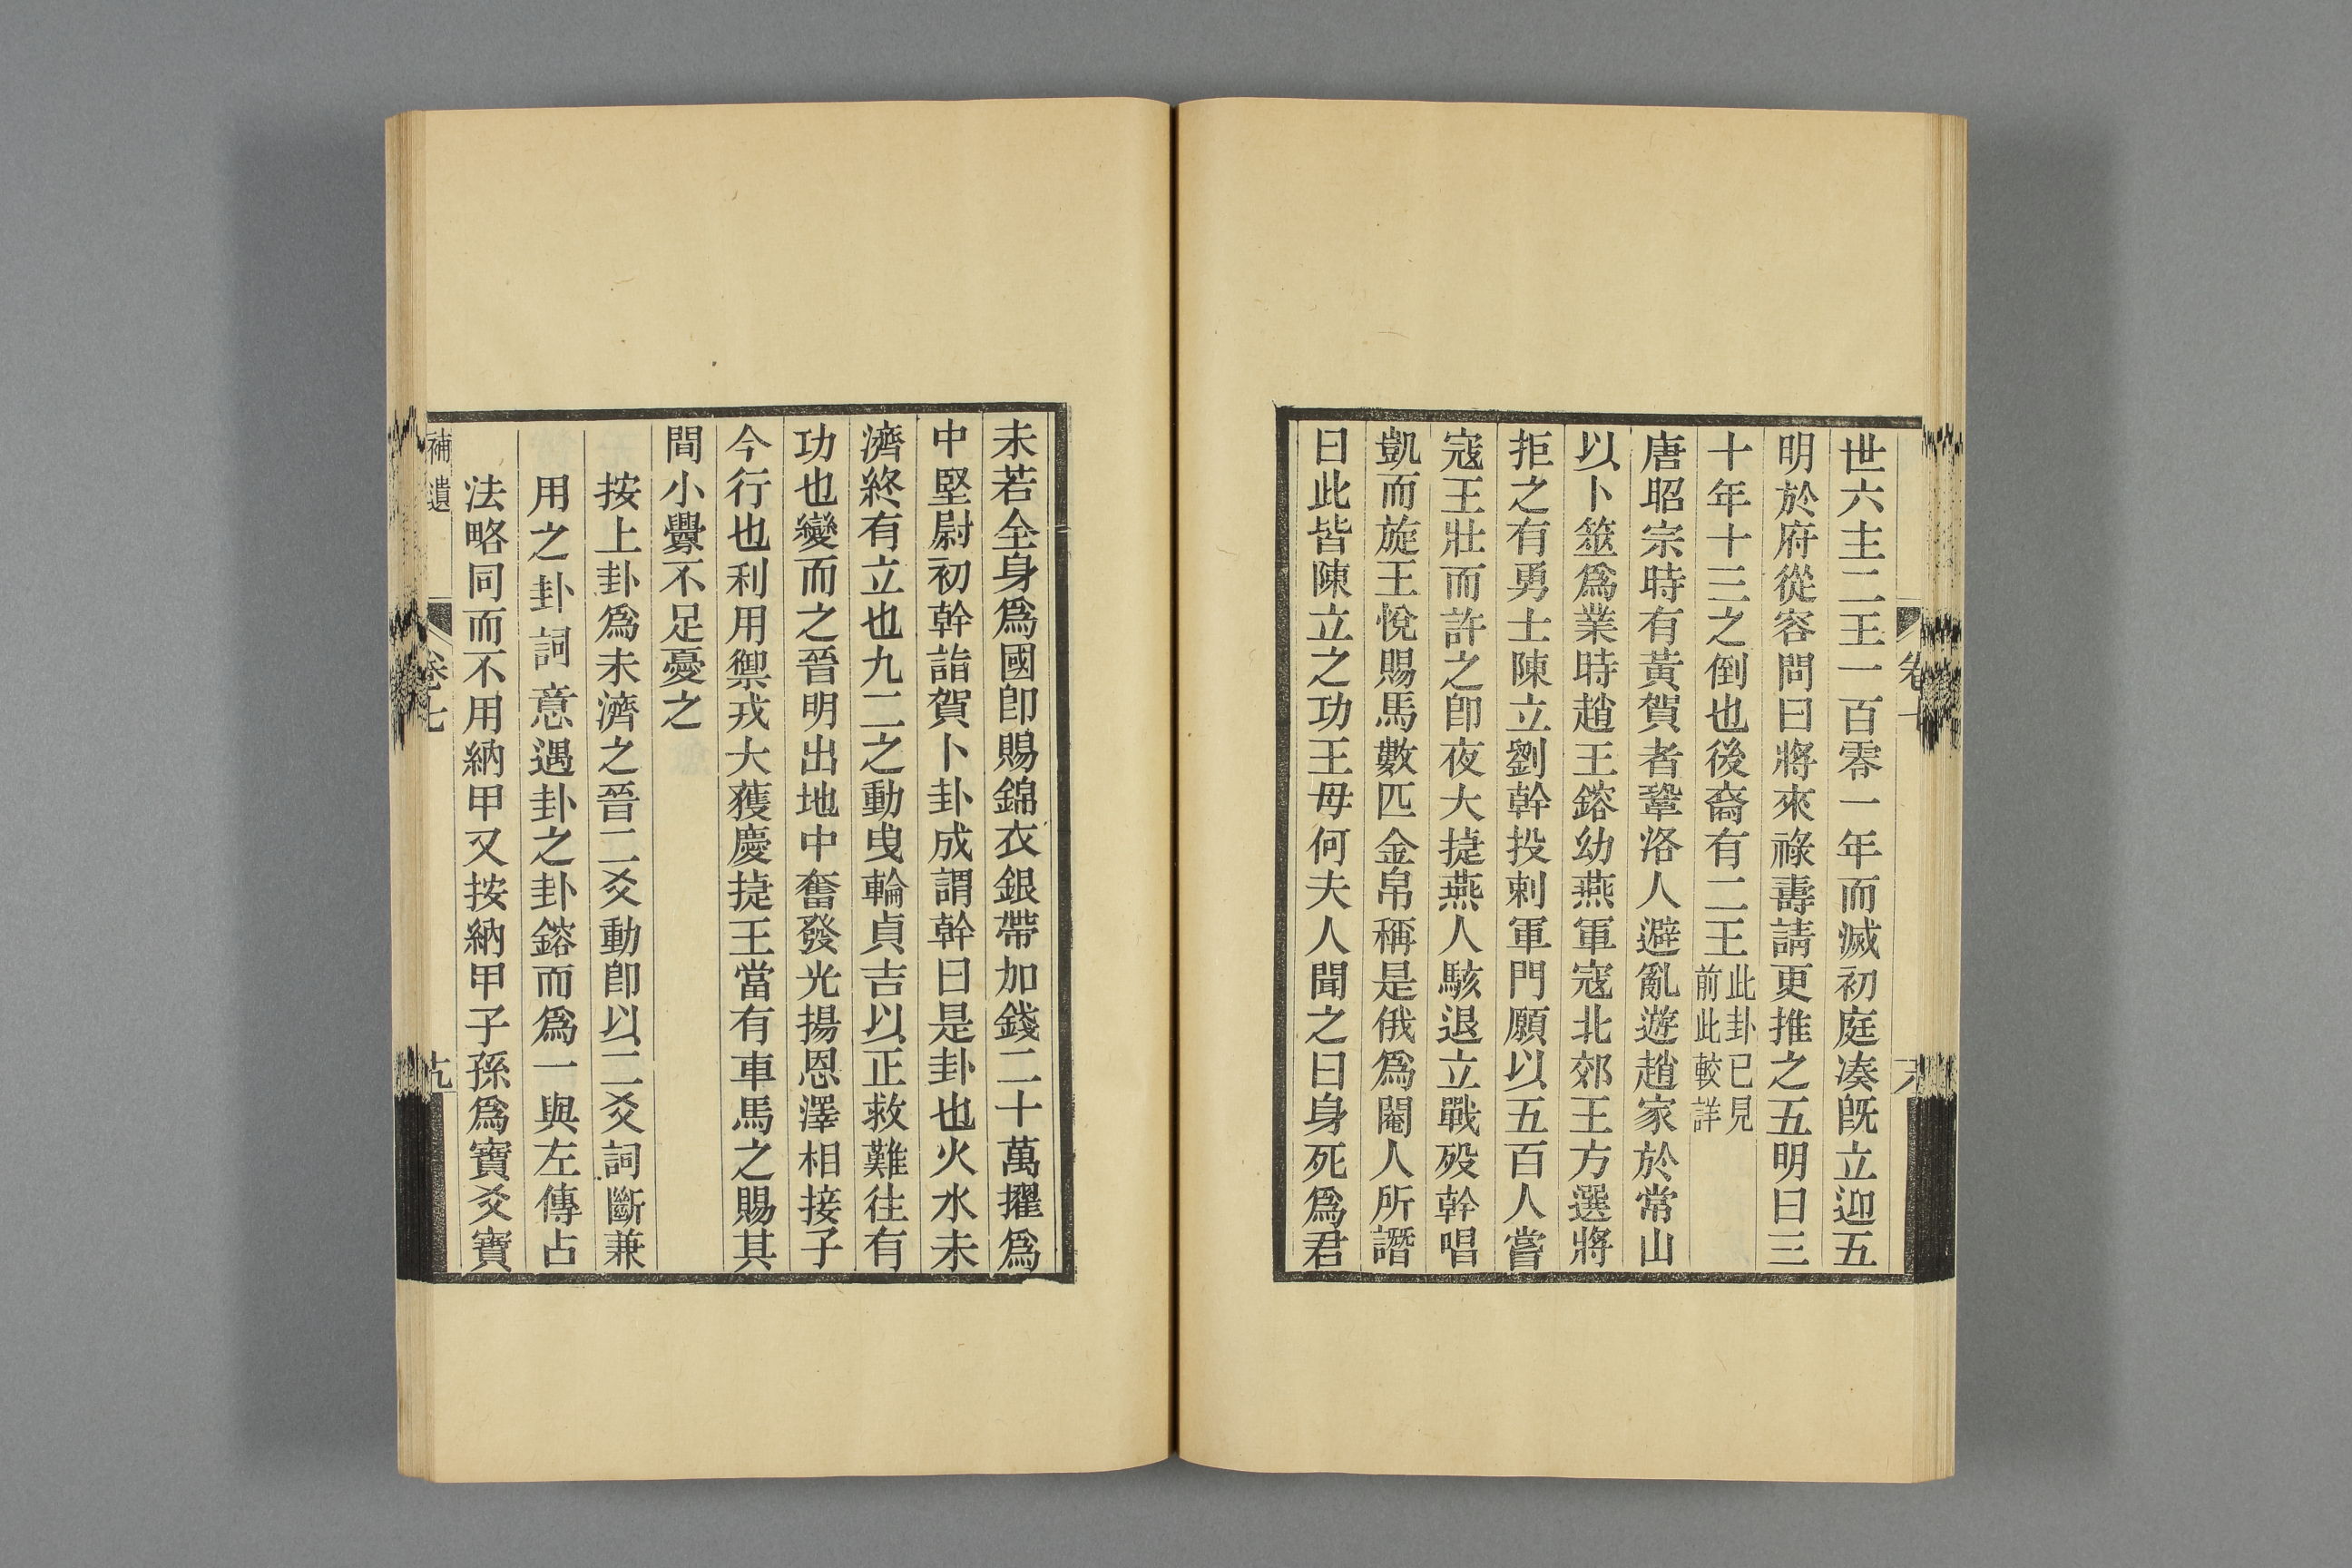 世六主二王一百零一年而滅初庭湊旣立迎五
明於府從容問曰將來祿壽請更推之五明曰三
十年十三之倒也後裔有二王此卦已見前此較詳
唐昭宗時有黃賀者鞏洛人避亂遊趙家於常山
以卜筮爲業時趙王鎔幼燕軍寇北郊王方選將
拒之有勇士陳立劉幹投刺軍門願以五百人嘗
寇王壯而許之卽夜大捷燕人駭退立戰歿幹唱
凱而旋王悅賜馬數匹金帛稱是俄爲閹人所譖
曰此皆陳立之功王毋何夫人聞之曰身死爲君
未若全身爲國卽賜錦衣銀帶加錢二十萬擢爲
中堅尉初幹詣賀卜卦成謂幹曰是卦也火水未
濟終有立也九二之動曳輪貞吉以正救難往有
功也變而之晉明出地中奮發光揚恩澤相接子
今行也利用禦戎大獲慶捷王當有車馬之賜其
間小釁不足憂之
按上卦爲未濟之晉二爻動卽以二爻詞斷兼
用之卦詞意遇卦之卦鎔而爲一與左傳占
法略同而不用納甲又按納甲子孫爲寶爻寶
補遺 卷七